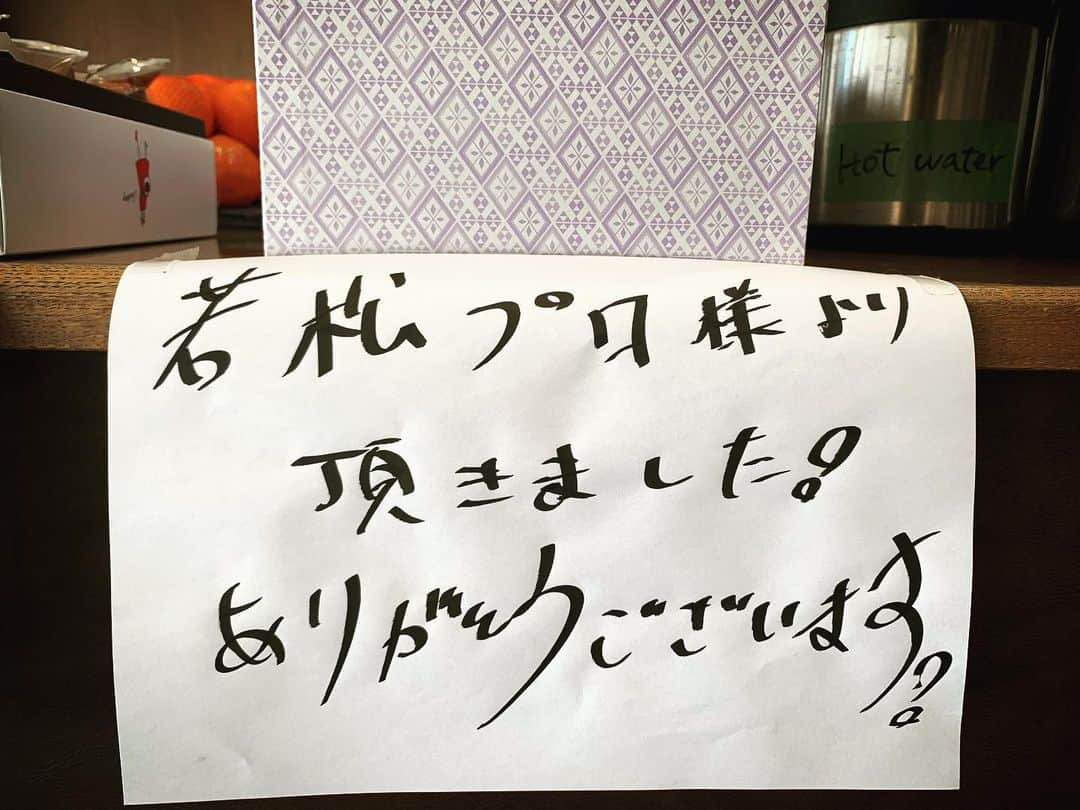 Hot water
若松プロ様より
頂きました?
ありがとうございます?